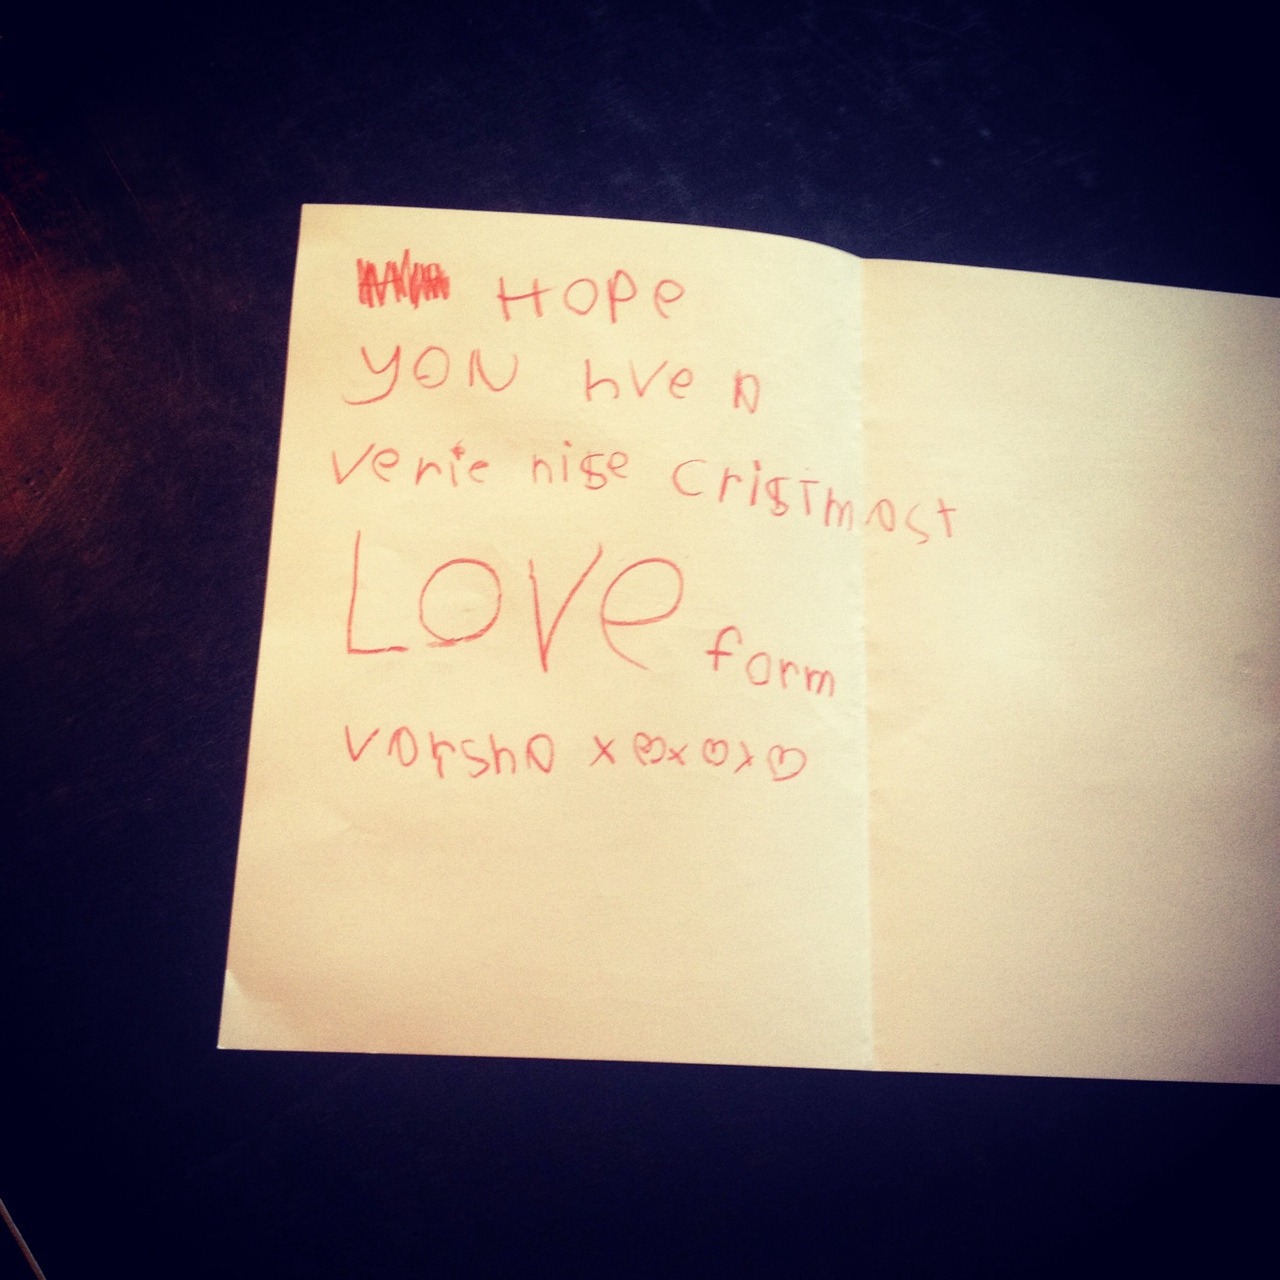 Hope
you hve a
verie nise cristmast
Love form
varsha x♡x♡x♡